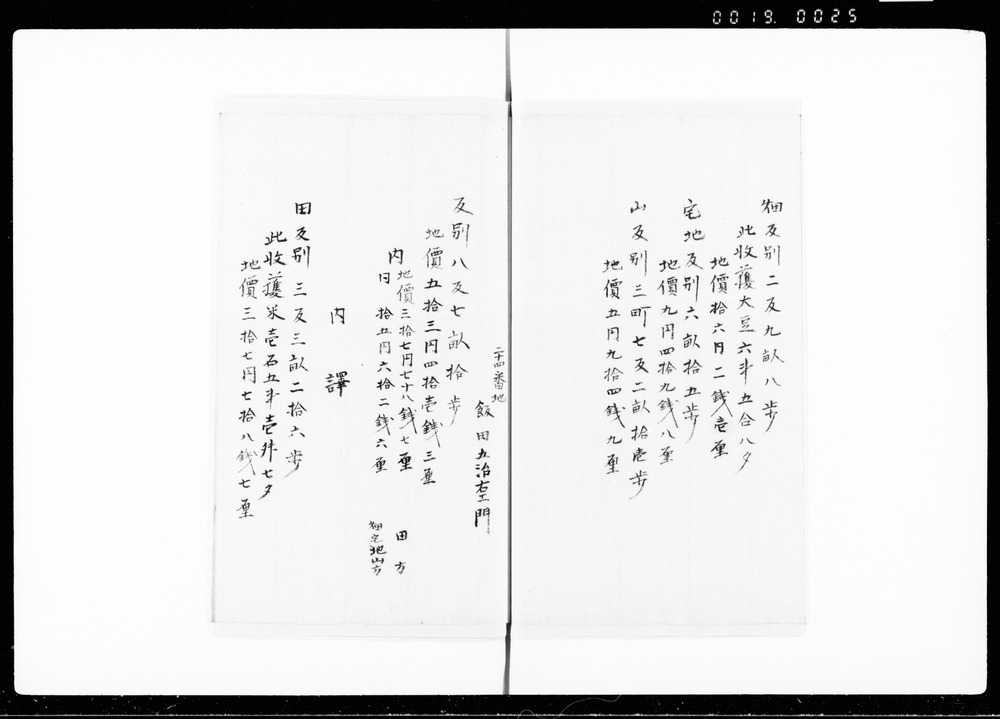 0019. 0025
畑反別二反九畝八歩
此收護大豆六斗五合八夕
地價拾六円二銭壱厘
宅地反別六畝拾五歩
地價九円四拾九銭八厘
山反別三町七反二畝拾壱歩
地價五円九拾四銭九厘
二十四番地
飯田五治右エ門
反別八反七畝拾歩
地價五拾三円四拾壱銭三厘
内地價三拾七円七十八銭七厘 田方
同拾五円六拾二銭六厘 畑宅地山方
内譯
田反別三反三畝二拾六歩
此收護米壱石五斗壱升七夕
地價三拾七円七拾八銭七厘